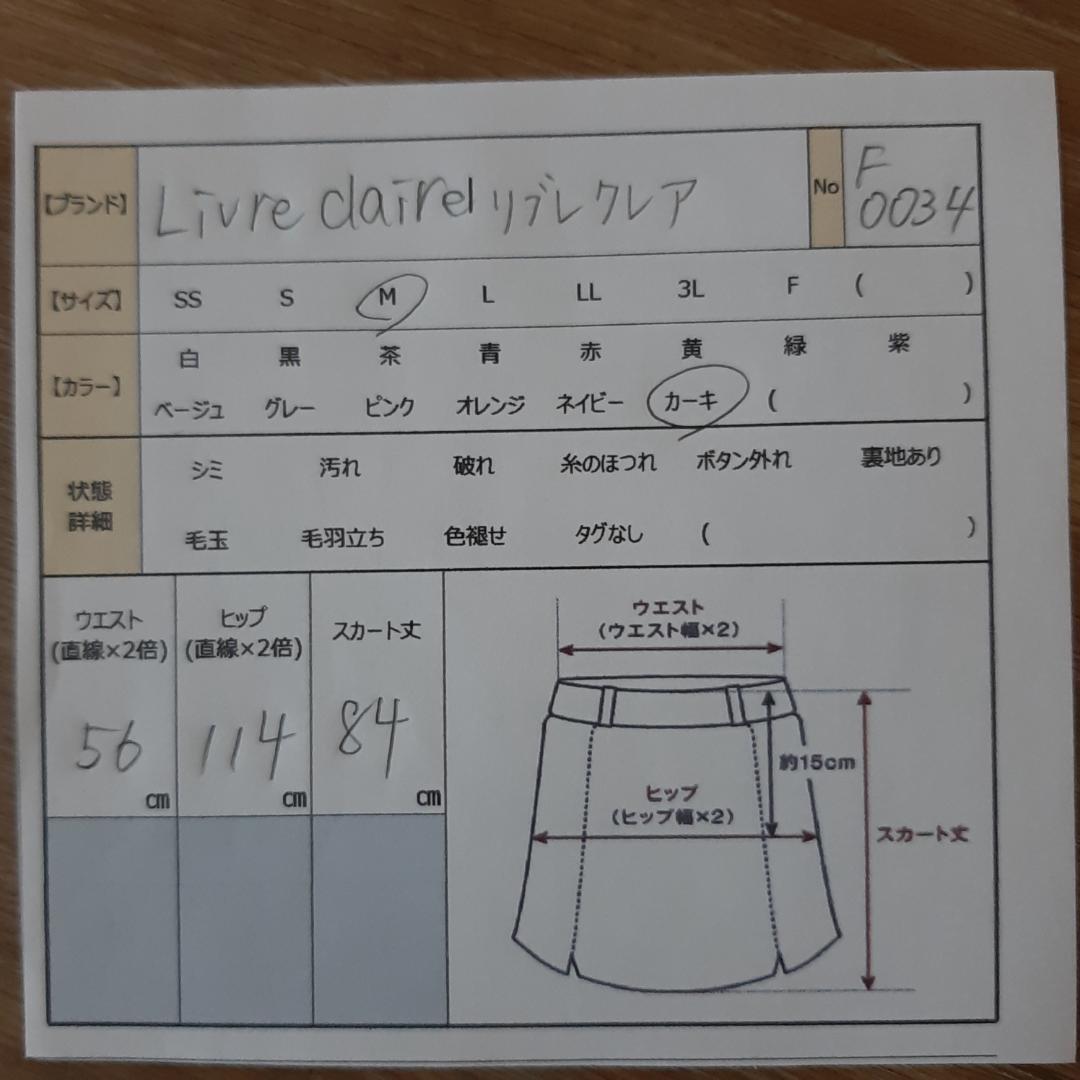 【ブランド】 Livre claire リブレクレア No F 0034
【サイズ】 SS S M L LL 3L F ( )
【カラー】 白 黒 茶 青 赤 黄 緑 紫
ベージュ グレー ピンク オレンジ ネイビー カーキ ( )
状態
詳細
シミ 汚れ 破れ 糸のほつれ ボタン外れ 裏地あり
毛玉 毛羽立ち 色褪せ タグなし ( )
ウエスト
(直線×2倍)
56
cm
ヒップ
(直線×2倍)
114
cm
スカート丈
84
cm
ウエスト
(ウエスト幅×2)
約15cm
ヒップ
(ヒップ幅×2)
スカート丈